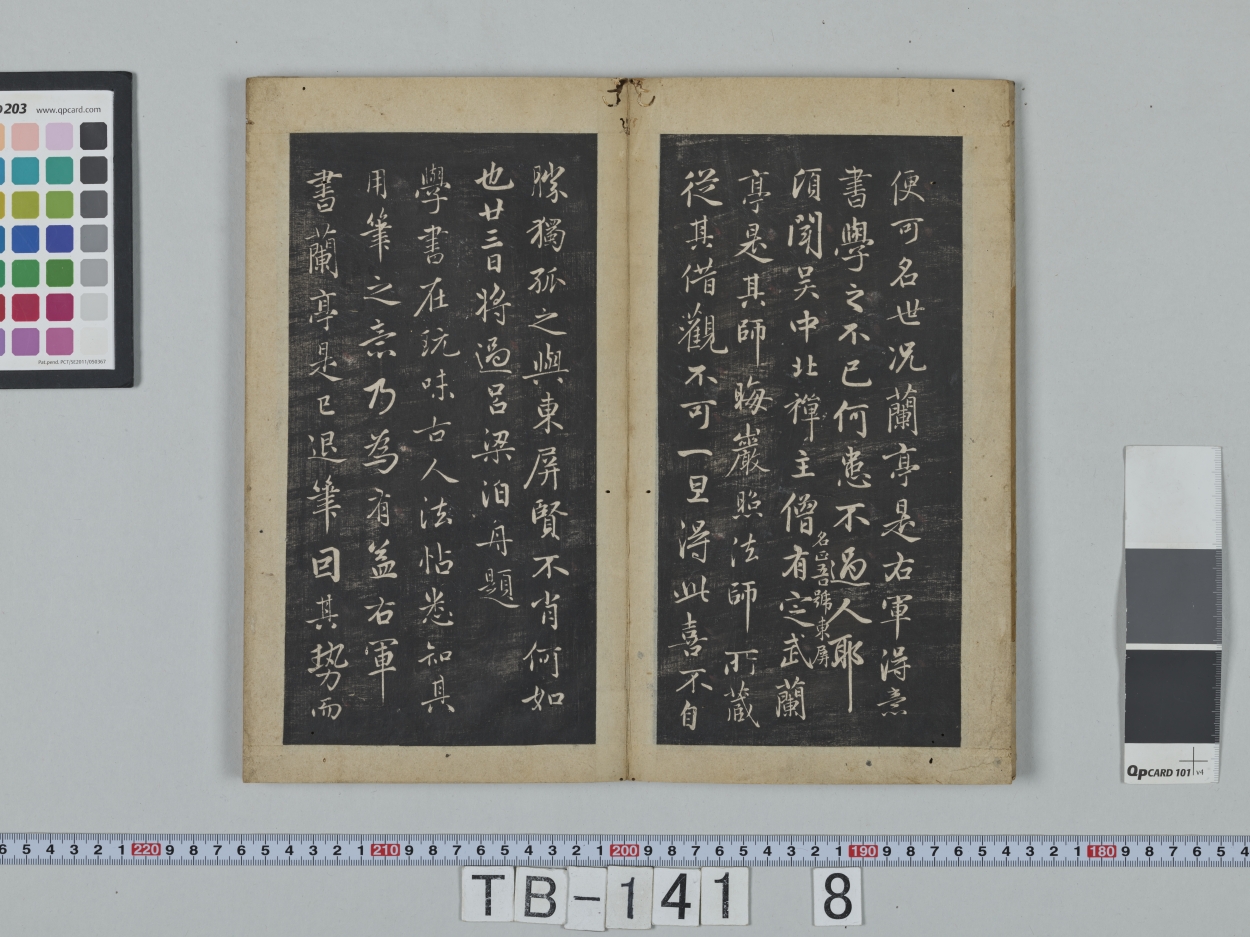 便可名世况蘭亭是右軍得意
書學之不已何患不過人耶
須聞吴中北禪主僧有定武蘭
名正吾號東屏
亭是其師晦巖照法師所蔵
從其借觀不可一旦得此喜不自
勝獨孤之與東屏賢不肖何如
也廿三日將過呂梁泊舟題
學書在玩味古人法帖悉知其
用筆之意乃為有益右軍
書蘭亭是已退筆因其勢而
203
www.qpcard.com
Pat.pend. PCT/SE2011/050367
QpCARD 101 v4
6 5 4 3 2 1 220 9 8 7 6 5 4 3 2 1 210 9 8 7 6 5 4 3 2 1 200 9 8 7 6 5 4 3 2 1 190 9 8 7 6 5 4 3 2 1 180 9 8 7 6 5 4
TB-141 8